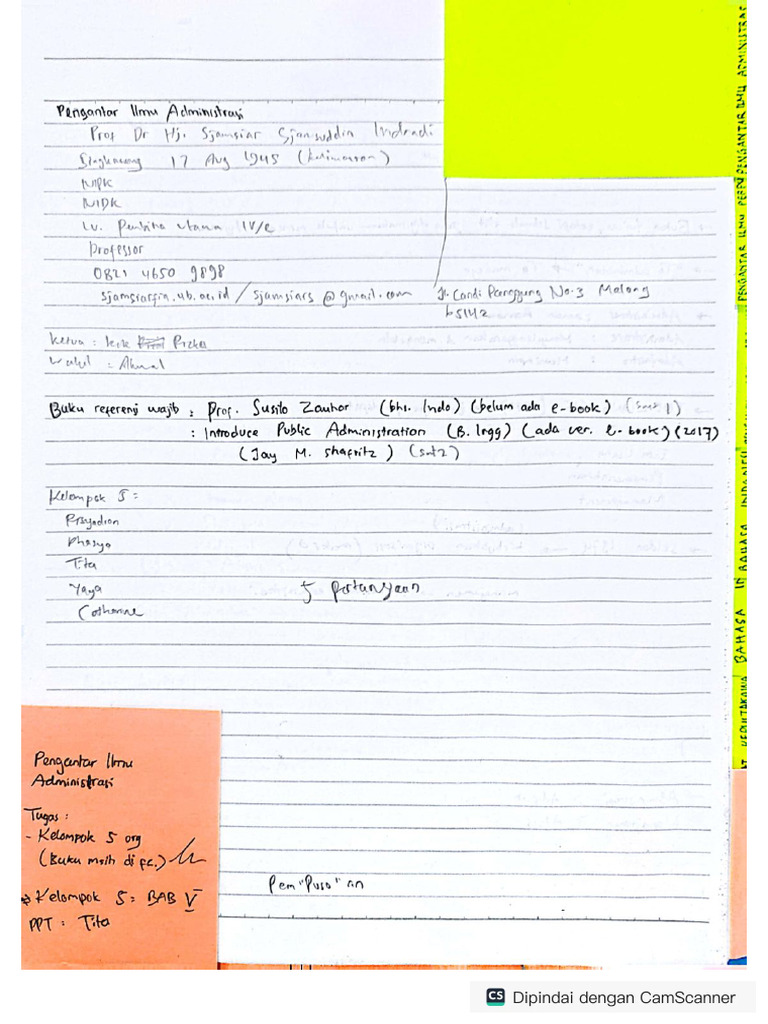 Pengantar Ilmu Administrasi
Prof Dr Hj. Sjamsiar Sjamsuddin Indradi
Singkawang 17 Aug 1945 (Kalimantan)
NIPK
NIDK
Pembina utama IV/e
Professor
0821 4650 9898
sjamsiarsjam.ub.ac.id / sjamsiars@gmail.com
Jl. Candi Panggung No.3 Malang
65142
Ketua : Kerk Rizka
Wakil : Akmal
Buku referensi wajib : Prof. Susilo Zauhar (bhs. Indo) (belum ada e-book) (smt 1)
: Introduce Public Administration (B. Ingg) (ada ver. e-book) (2017)
(Jay M. Shafritz) (smt2)
Kelompok 5 :
Tita
Yaya
5 pertanyaan
Catharine
Pengantar Ilmu
Administrasi
Tugas :
- Kelompok 5 org
(Buku msih di fc.)
→ Kelompok 5 : BAB V
PPT : Tita
Pem"Pusa"an
PENGANTAR ILMU ADMINISTRAS
PENGANTAR ILMU PERPU
BAHASA INDONESI
BAHASA IN
Dipindai dengan CamScanner